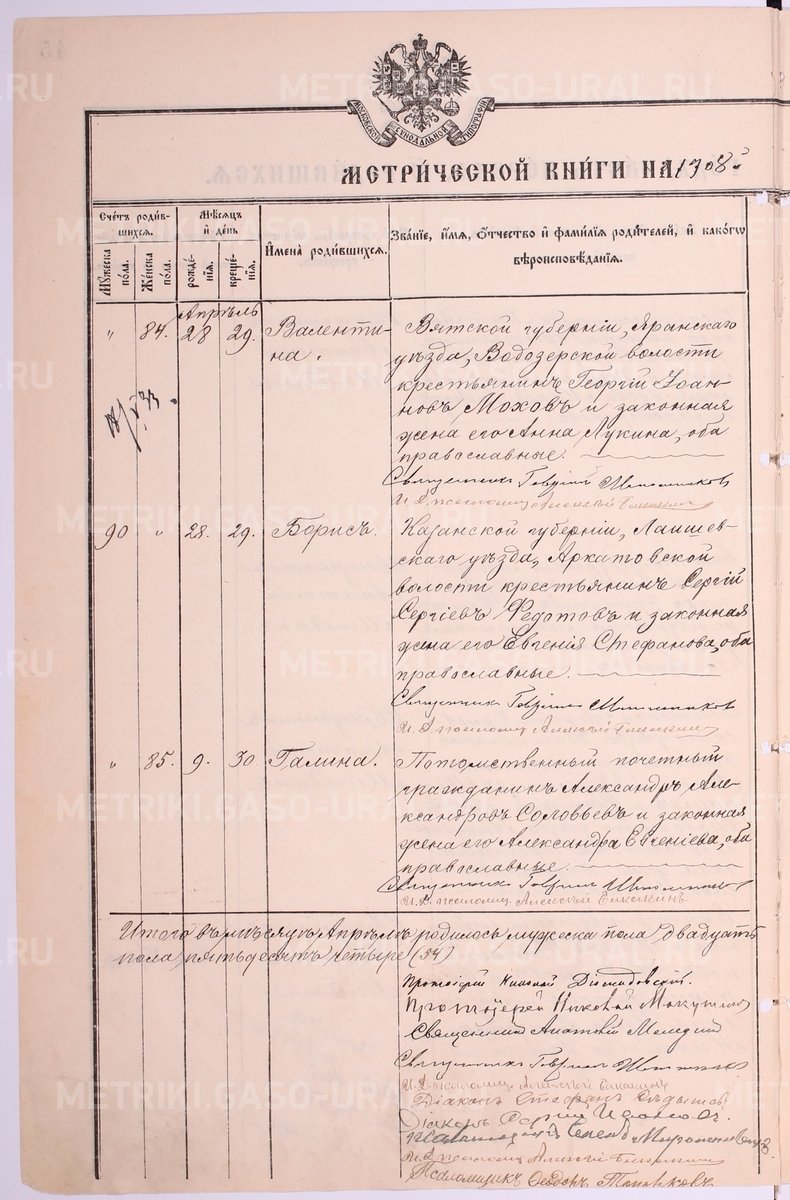 МОСКОВСКОЙ СѴНОДАЛЬНОЙ ТИПОГРАФІИ
МЕТРИ́ЧЕСКОЙ КНИ́ГИ НА 1908 г.
Счетъ роди́в-
шихся.
Мѣсяцъ
и́ де́нь
И҆мена̀ роди́вшихся.
Зва́нїе, и҆́мя, ѻ҆́тчество и҆ фами́лїя роди́телей, и҆ како́гѡ
вѣроисповѣ́данїя.
Мꙋ́жеска по́ла.
Же́нска по́ла.
рожде́нїя.
креще́нїя.
Апрѣль
" 84. 28 29. Валенти-
на.
Вятской губерніи, Яранскаго
уѣзда, Водозерской волости
крестьянинъ Георгій Іоан-
новъ Моховъ и законная
жена его Анна Лукина, оба
православные.
Священникъ Гавріилъ
И. д. псаломщ. Алексѣй
90 " 28. 29. Борисъ.
Казанской губерніи, Лаишев-
скаго уѣзда, Аркатовской
волости крестьянинъ Сергій
Сергіевъ Федотовъ и законная
жена его Евгенія Стефанова, оба
православные.
Священникъ Гавріилъ
И. д. псаломщ. Алексѣй
" 85. 9. 30 Галина.
Потомственный почетный
гражданинъ Александръ Але-
ксандровъ Соловьевъ и законная
жена его Александра Евгеніева, оба
православные.
Священникъ Гавріилъ
И. д. псаломщ. Алексѣй
Итого въ мѣсяцѣ Апрѣлѣ родилось мужеска пола двадцать
пола пятьдесятъ четыре (54)
Протоіерей Николай
Протоіерей Николай
Священникъ Анатолій
Священникъ Гавріилъ
И. д. псаломщ. Алексѣй
Діаконъ Стефанъ
Діаконъ Сергій
Семенъ
И. д. псаломщ. Алексѣй
Псаломщикъ Ѳеодоръ
METRIKI.GASO-URAL.RU